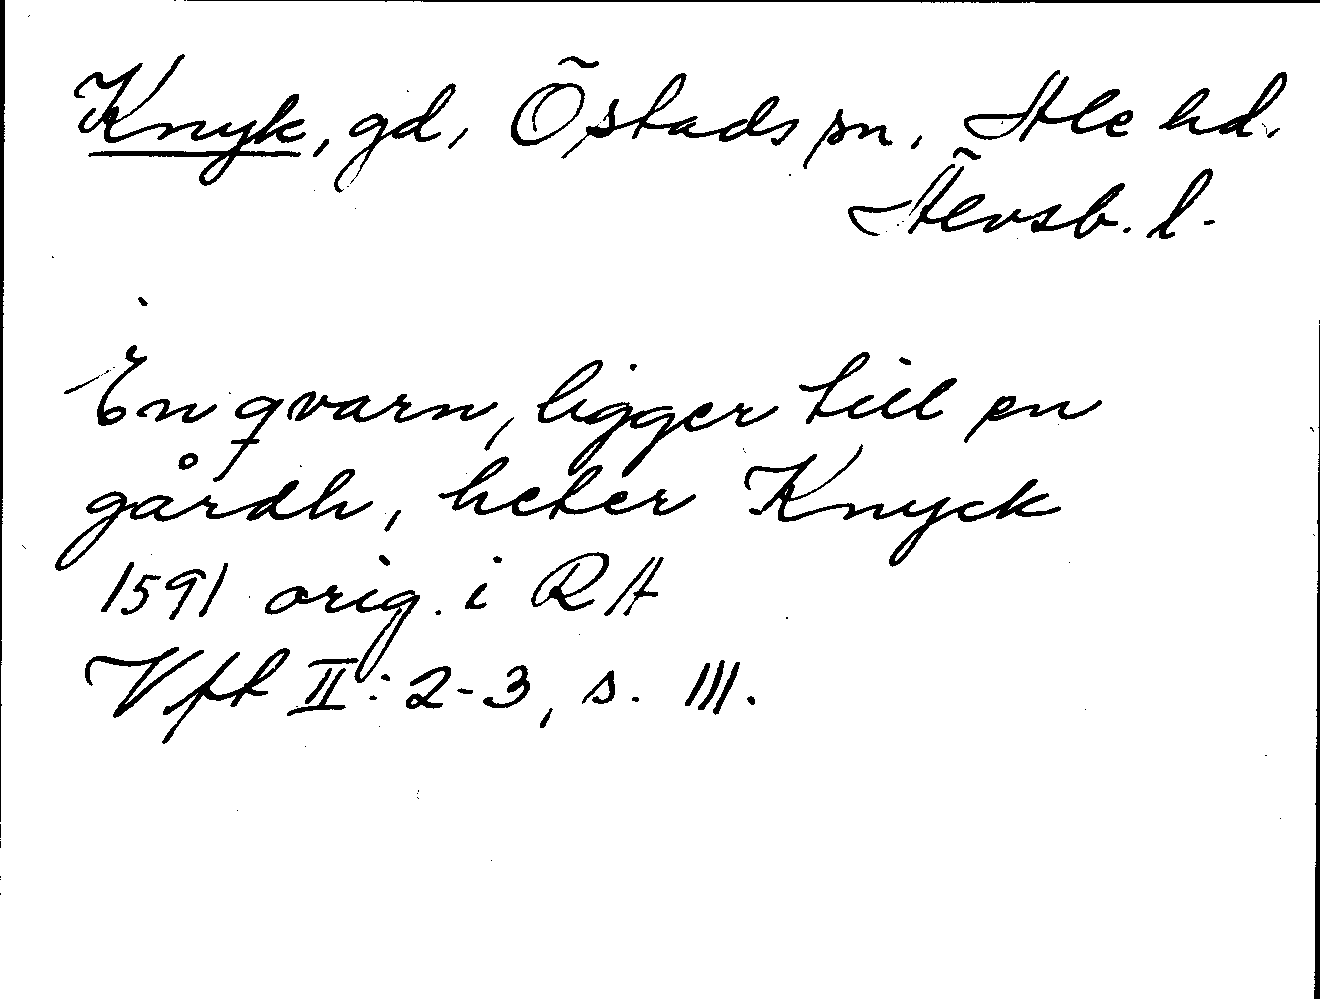 Knyk, gd, Östads sn, Ale hd.
Älvsb. l.
En qvarn, ligger till en
gårdh, heter Knyck
1591 orig. i RA
Vft II: 2-3, s. 111.